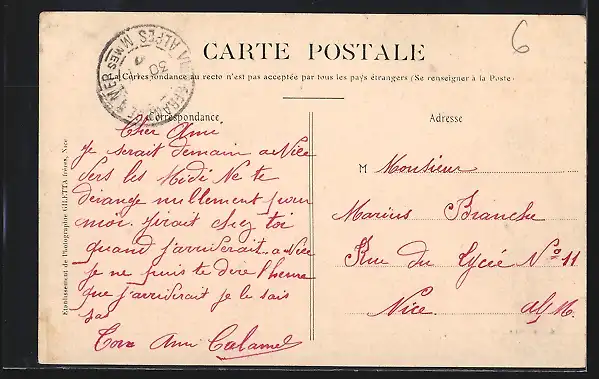 6
CARTE POSTALE
La Correspondance au recto n'est pas acceptée par tous les pays étrangers (Se renseigner à la Poste)
ALPES MMES
30
Correspondance
Adresse
Cher Ami
Je serait demain a Nice
vers les Midi Ne te
dérange nullement pour
moi. Jirait chez toi
quand j'arriverait a Nice
je ne puis te dire l'heure
que j'arriverait je le sais
pas
Ton Ami Calamel
M Monsieur
Marius Branche
Rue du Lycée No 11
Nice. A/M.
Etablissement de Photographie GILETTA frères, Nice